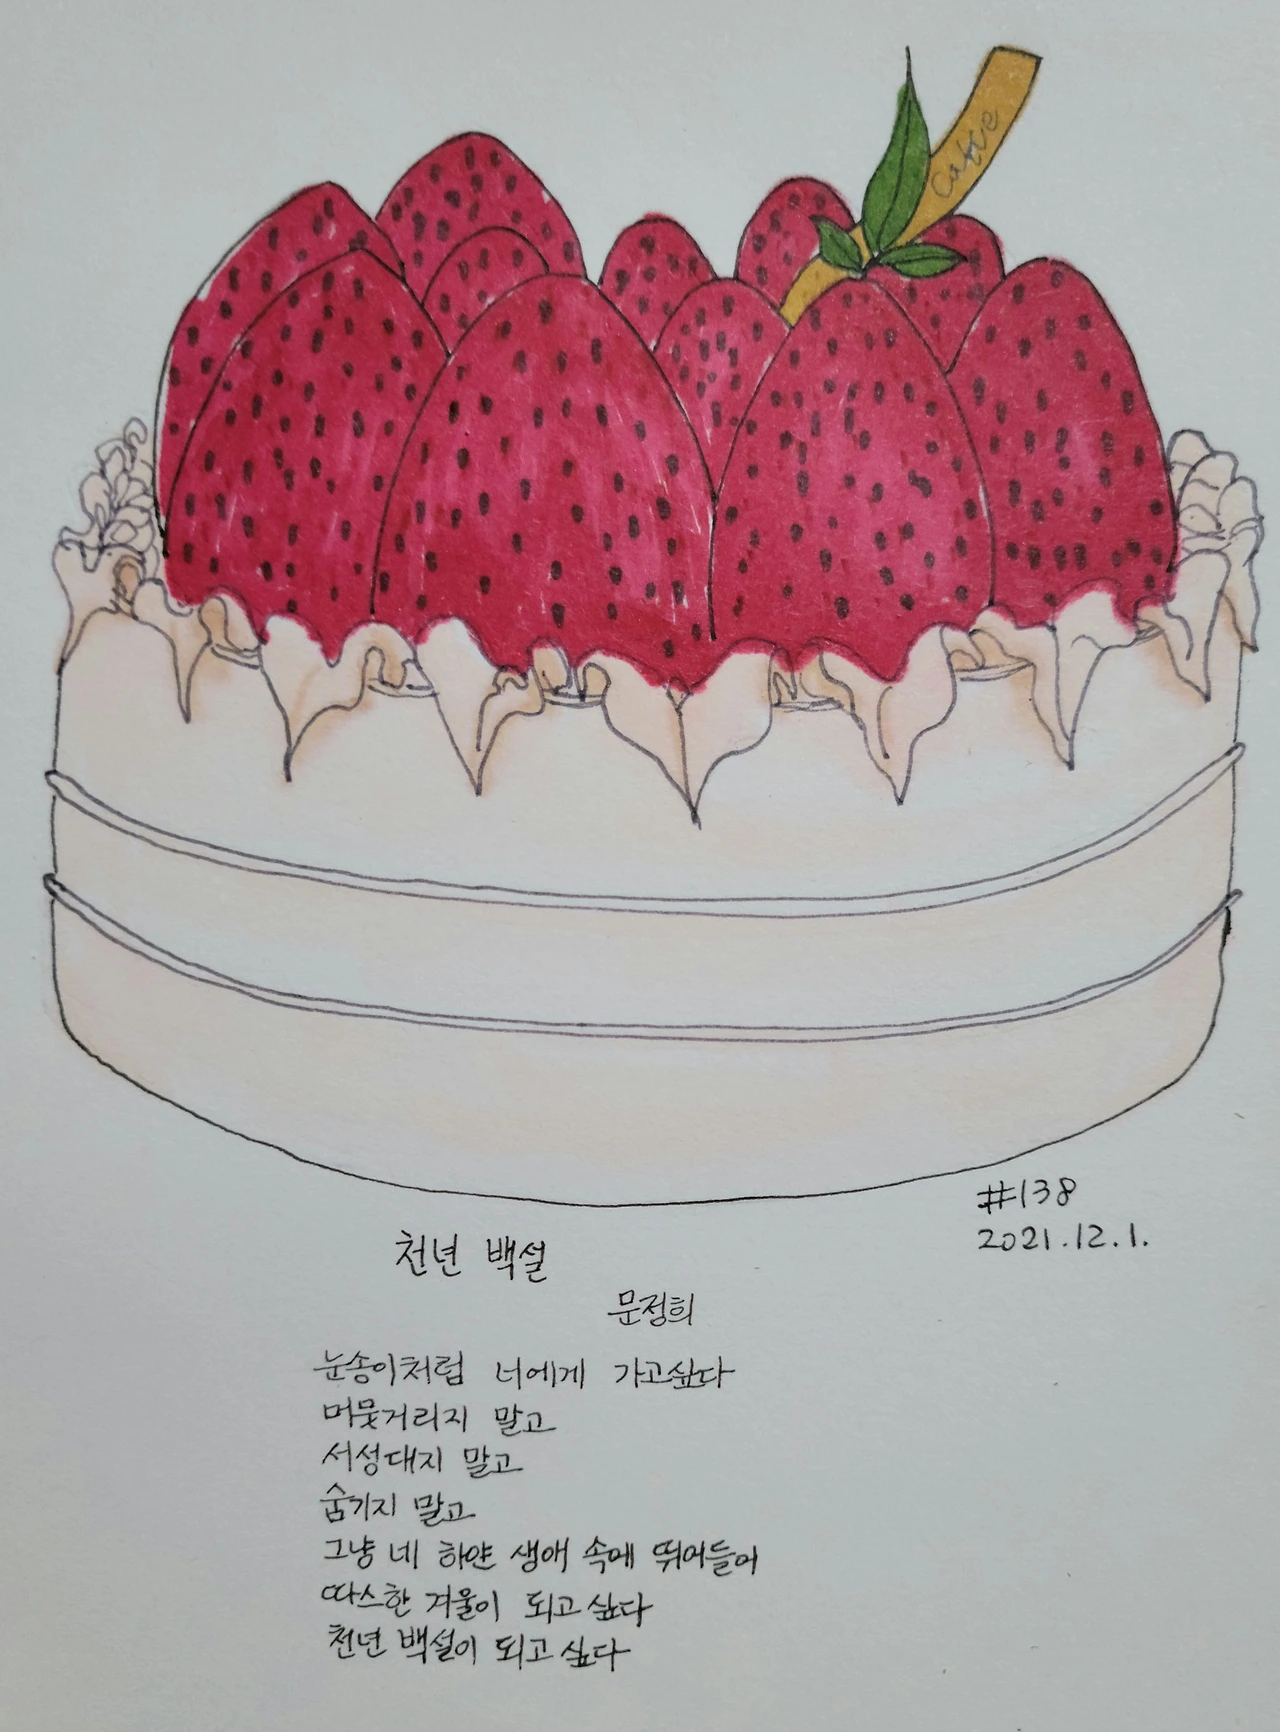 cake
#138
2021.12.1.
천년 백설
문정희
눈송이처럼 너에게 가고싶다
머뭇거리지 말고
서성대지 말고
숨기지 말고
그냥 네 하얀 생애 속에 뛰어들어
따스한 겨울이 되고 싶다
천년 백설이 되고 싶다